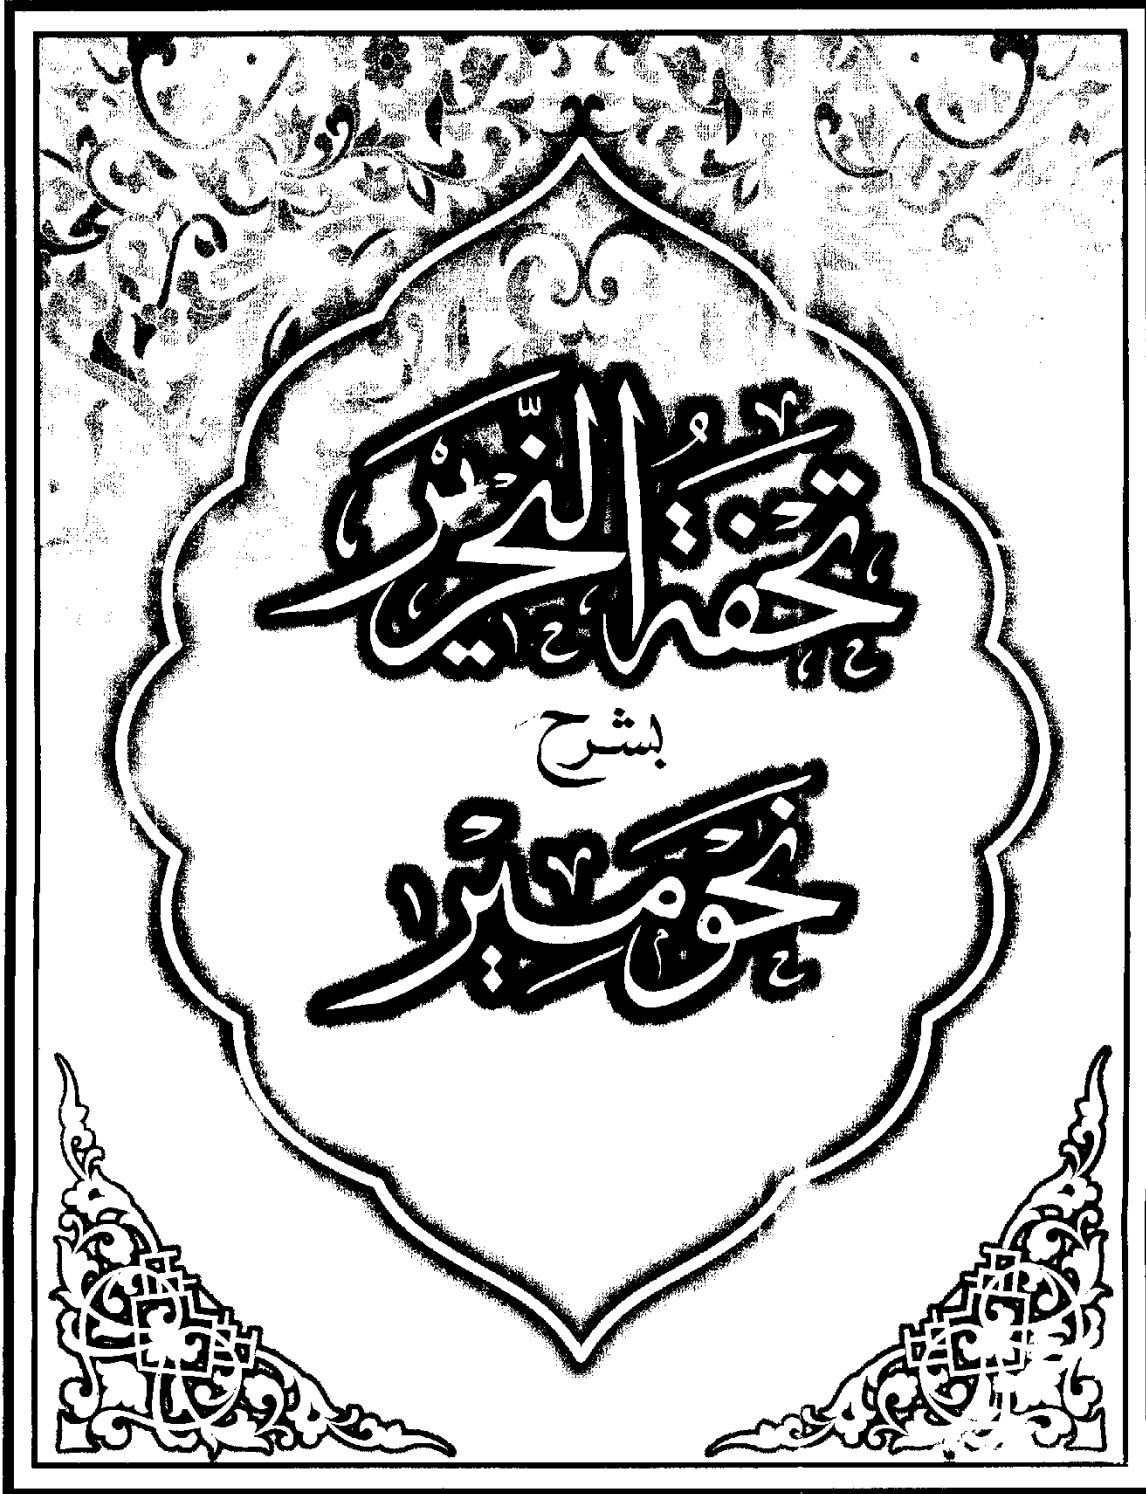 تحفةُ النِّحرير
بشرح
نحو مير